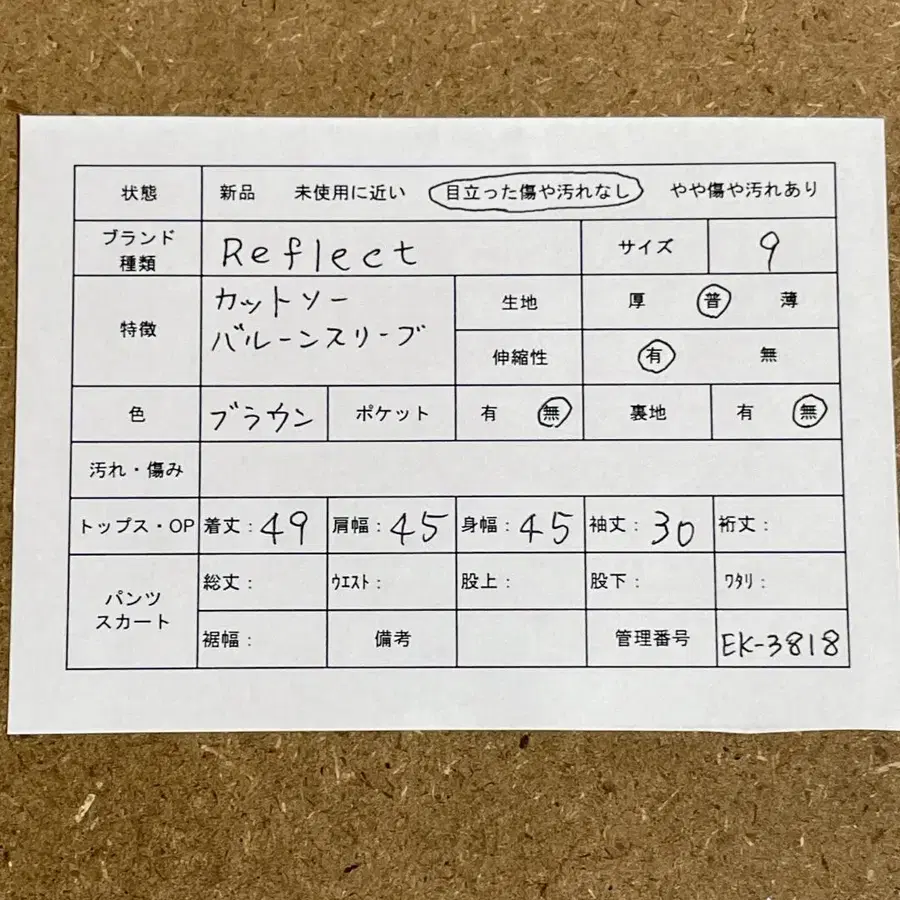 状態 新品 未使用に近い 目立った傷や汚れなし やや傷や汚れあり
ブランド
種類 Reflect サイズ 9
特徴 カットソー
バルーンスリーブ
生地 厚 普 薄
伸縮性 有 無
色 ブラウン ポケット 有 無 裏地 有 無
汚れ・傷み
トップス・OP 着丈:49 肩幅:45 身幅:45 袖丈:30 裄丈:
パンツ
スカート
総丈: ウエスト: 股上: 股下: ワタリ:
裾幅: 備考 管理番号 EK-3818